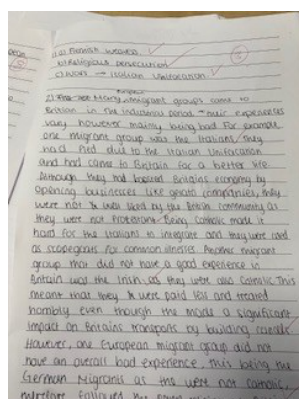 1)a) Flemish weavers
b) Religious persecution
c) Wars → Italian Unification
2) Many migrant groups came to
Britain in the industrial period their experiences
vary however mainly being bad. For example
one migrant group was the Italians, they
had fled due to the Italian Unification
and had came to Britain for a better life.
Although they had Britains economy by
opening businesses like gelato companies, they
were not well liked by the British community as
they were not Protestant. Being Catholic made it
hard for the Italians to integrate and they were
as scapegoats for common illnesses. Another migrant
group that did not have a good experience in
Britain was the Irish as they were also Catholic. This
meant that they were paid less and treated
horribly even though the made a significant
impact on Britains transport by building canals.
However, one European migrant group did not
have an overall bad experience, this being the
German Migrants as the were not Catholic,
followed